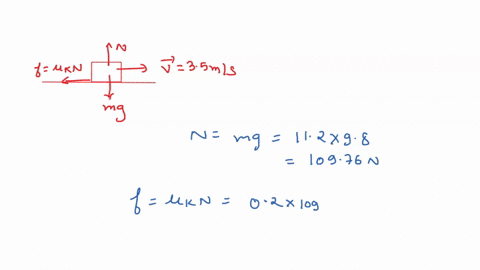 N
f = μKN
v⃗ = 3.5 m/s
mg
N = mg = 11.2 × 9.8
= 109.76 N
f = μKN = 0.2 × 109